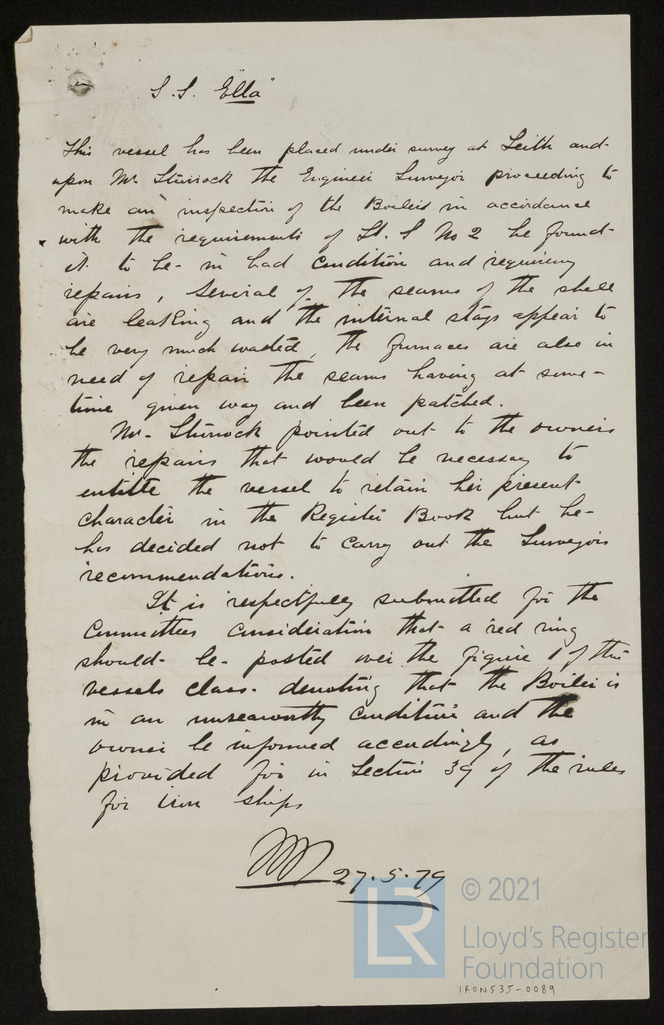 S.S. "Ella"
This vessel has been placed under survey at Leith and
upon Mr Sturrock the Engineer Surveyor proceeding to
make an inspection of the Boilers in accordance
with the requirements of Lt. S No 2 he found
it to be in bad condition and requiring
repairs, several of the seams of the shell
are leaking and the internal stays appear to
be very much wasted, the furnaces are also in
need of repair the seams having at some-
time given way and been patched.
Mr. Sturrock pointed out to the owners
the repairs that would be necessary to
entitle the vessel to retain her present
character in the Register Book but he
has decided not to carry out the Surveyors
recommendations.
It is respectfully submitted for the
Committees consideration that a red ring
should be posted over the figure 1 of this
vessels class. denoting that the Boiler is
in an unseaworthy condition and the
owner be informed accordingly, as
provided for in Section 39 of the rules
for iron ships
27.5.79
LR
© 2021
Lloyd's Register
Foundation
IRON535-0089